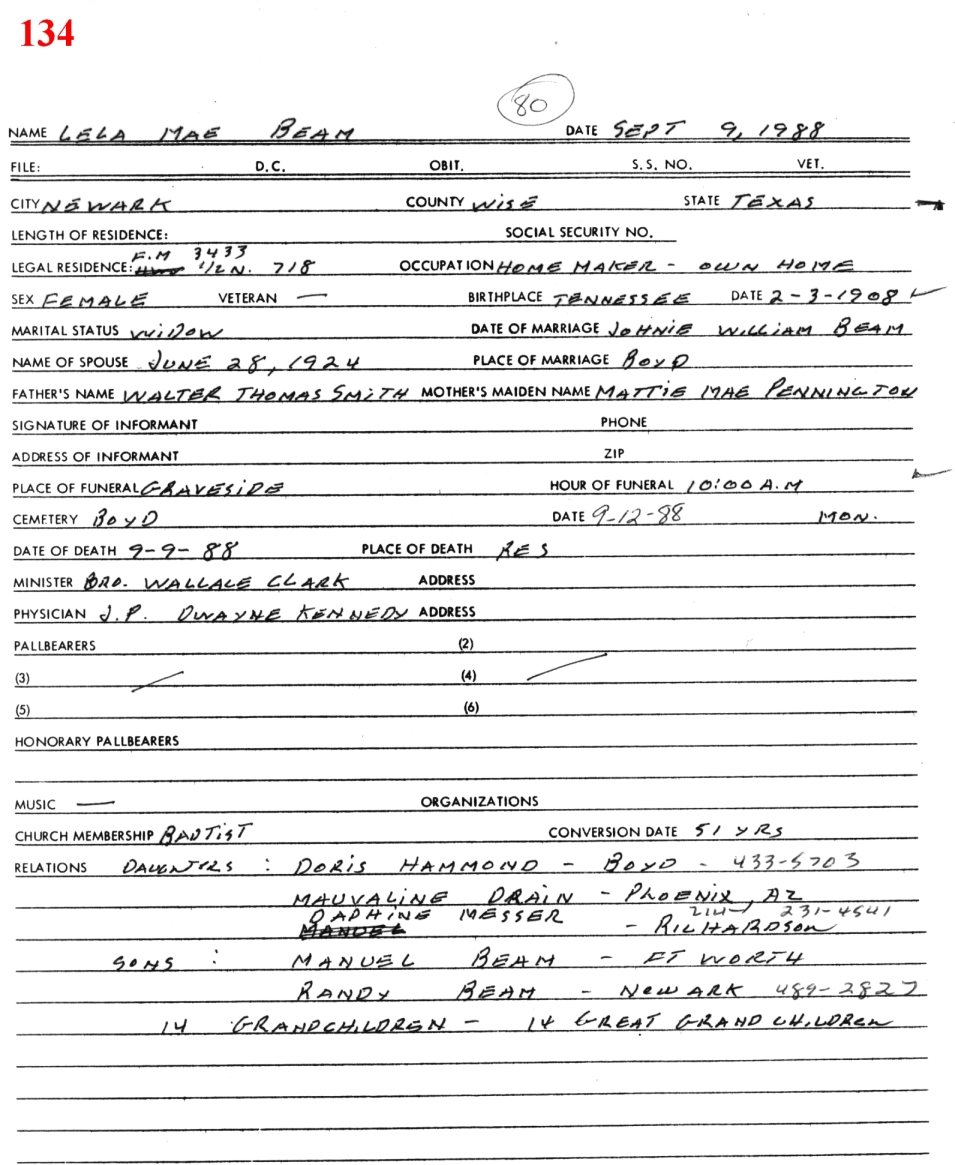 134
80
NAME LELA MAE BEAM DATE SEPT 9, 1988
FILE: D.C. OBIT. S.S. NO. VET.
CITY NEWARK COUNTY WISE STATE TEXAS
LENGTH OF RESIDENCE: SOCIAL SECURITY NO.
F.M 3433
LEGAL RESIDENCE: 1/2 N. 718 OCCUPATION HOME MAKER - OWN HOME
SEX FEMALE VETERAN — BIRTHPLACE TENNESSEE DATE 2-3-1908
MARITAL STATUS WIDOW DATE OF MARRIAGE JOHNIE WILLIAM BEAM
NAME OF SPOUSE JUNE 28, 1924 PLACE OF MARRIAGE BOYD
FATHER'S NAME WALTER THOMAS SMITH MOTHER'S MAIDEN NAME MATTIE MAE PENNINGTON
SIGNATURE OF INFORMANT PHONE
ADDRESS OF INFORMANT ZIP
PLACE OF FUNERAL GRAVESIDE HOUR OF FUNERAL 10:00 A.M
CEMETERY BOYD DATE 9-12-88 MON.
DATE OF DEATH 9-9-88 PLACE OF DEATH RES
MINISTER BRO. WALLALE CLARK ADDRESS
PHYSICIAN J.P. DWAYNE KENNEDY ADDRESS
PALLBEARERS (2)
(3) (4)
(5) (6)
HONORARY PALLBEARERS
MUSIC — ORGANIZATIONS
CHURCH MEMBERSHIP BAPTIST CONVERSION DATE 51 YRS
RELATIONS DAUGHTERS : DORIS HAMMOND - BOYD - 433-5703
MAUVALINE DRAIN - PHOENIX, AZ
DAPHINE MESSER 214-231-4541
MANUEL - RICHARDSON
SONS : MANUEL BEAM - FT WORTH
RANDY BEAM - NEWARK 489-2827
14 GRANDCHILDREN - 14 GREAT GRANDCHILDREN